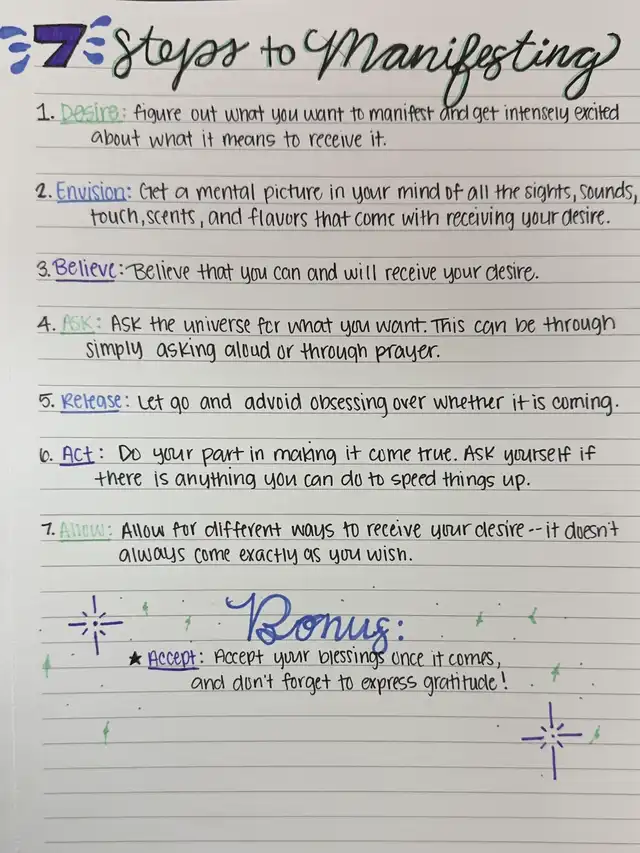 7 Steps to Manifesting
1. Desire: figure out what you want to manifest and get intensely excited
about what it means to receive it.
2. Envision: Get a mental picture in your mind of all the sights, sounds,
touch, scents, and flavors that come with receiving your desire.
3. Believe: Believe that you can and will receive your desire.
4. Ask: Ask the universe for what you want. This can be through
simply asking aloud or through prayer.
5. Release: Let go and advoid obsessing over whether it is coming.
6. Act: Do your part in making it come true. Ask yourself if
there is anything you can do to speed things up.
7. Allow: Allow for different ways to receive your desire--it doesn't
always come exactly as you wish.
Bonus:
★ Accept: Accept your blessings once it comes,
and don't forget to express gratitude!